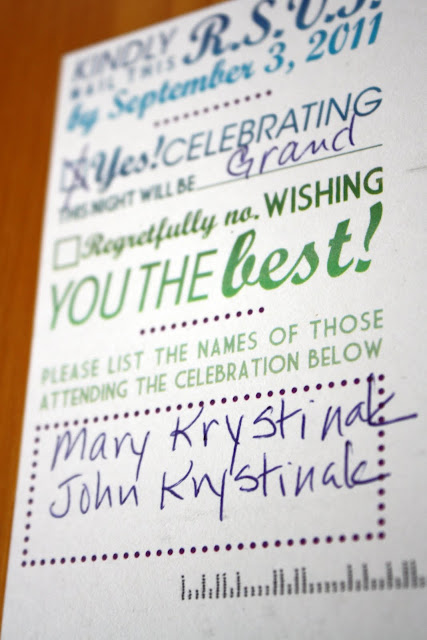 KINDLY
MAIL THIS R.S.V.P.
by September 3, 2011
Yes! CELEBRATING
THIS NIGHT WILL BE Grand
Regretfully no. WISHING
YOU THE best!
PLEASE LIST THE NAMES OF THOSE
ATTENDING THE CELEBRATION BELOW
Mary Krystinak
John Krystinak